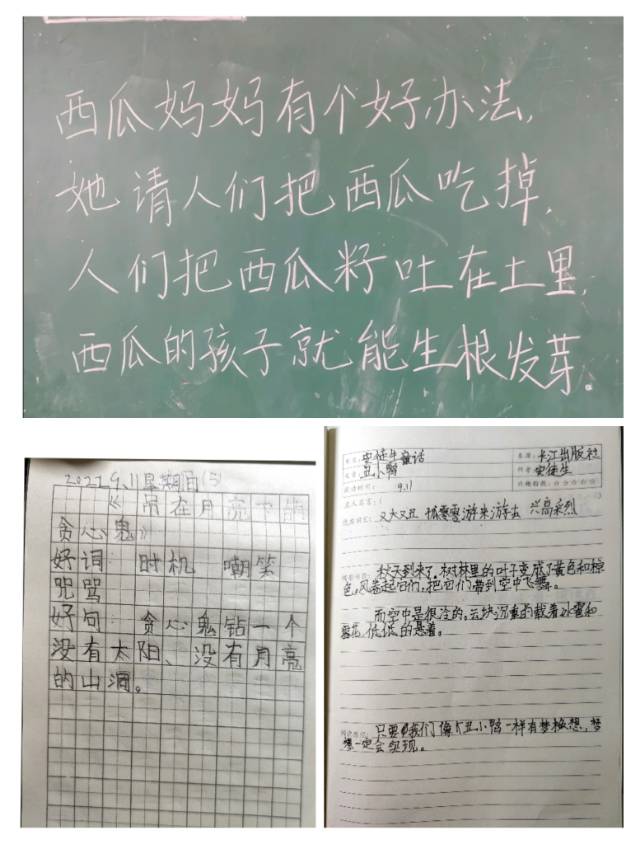 西瓜妈妈有个好办法,
她请人们把西瓜吃掉,
人们把西瓜籽吐在土里,
西瓜的孩子就能生根发芽。
2022.9.11星期日(5)
《吊在月亮下的
贪心鬼》
好词: 时机 嘲笑
咒骂
好句: 贪心鬼钻一个
没有太阳、没有月亮
的山洞。
安徒生童话 长江出版社
丑小鸭 作者 安徒生
9.11
又大又丑 孤零零 游来游去 兴高采烈
秋天到来了,树林里的叶子变成了黄色和棕
色,风卷起它们,把它们带到空中飞舞。
而空中是很冷的,云块沉重的载着冰雹和
雪花,低低的悬着。
只要我们像丑小鸭一样有梦想,梦
想一定会实现。